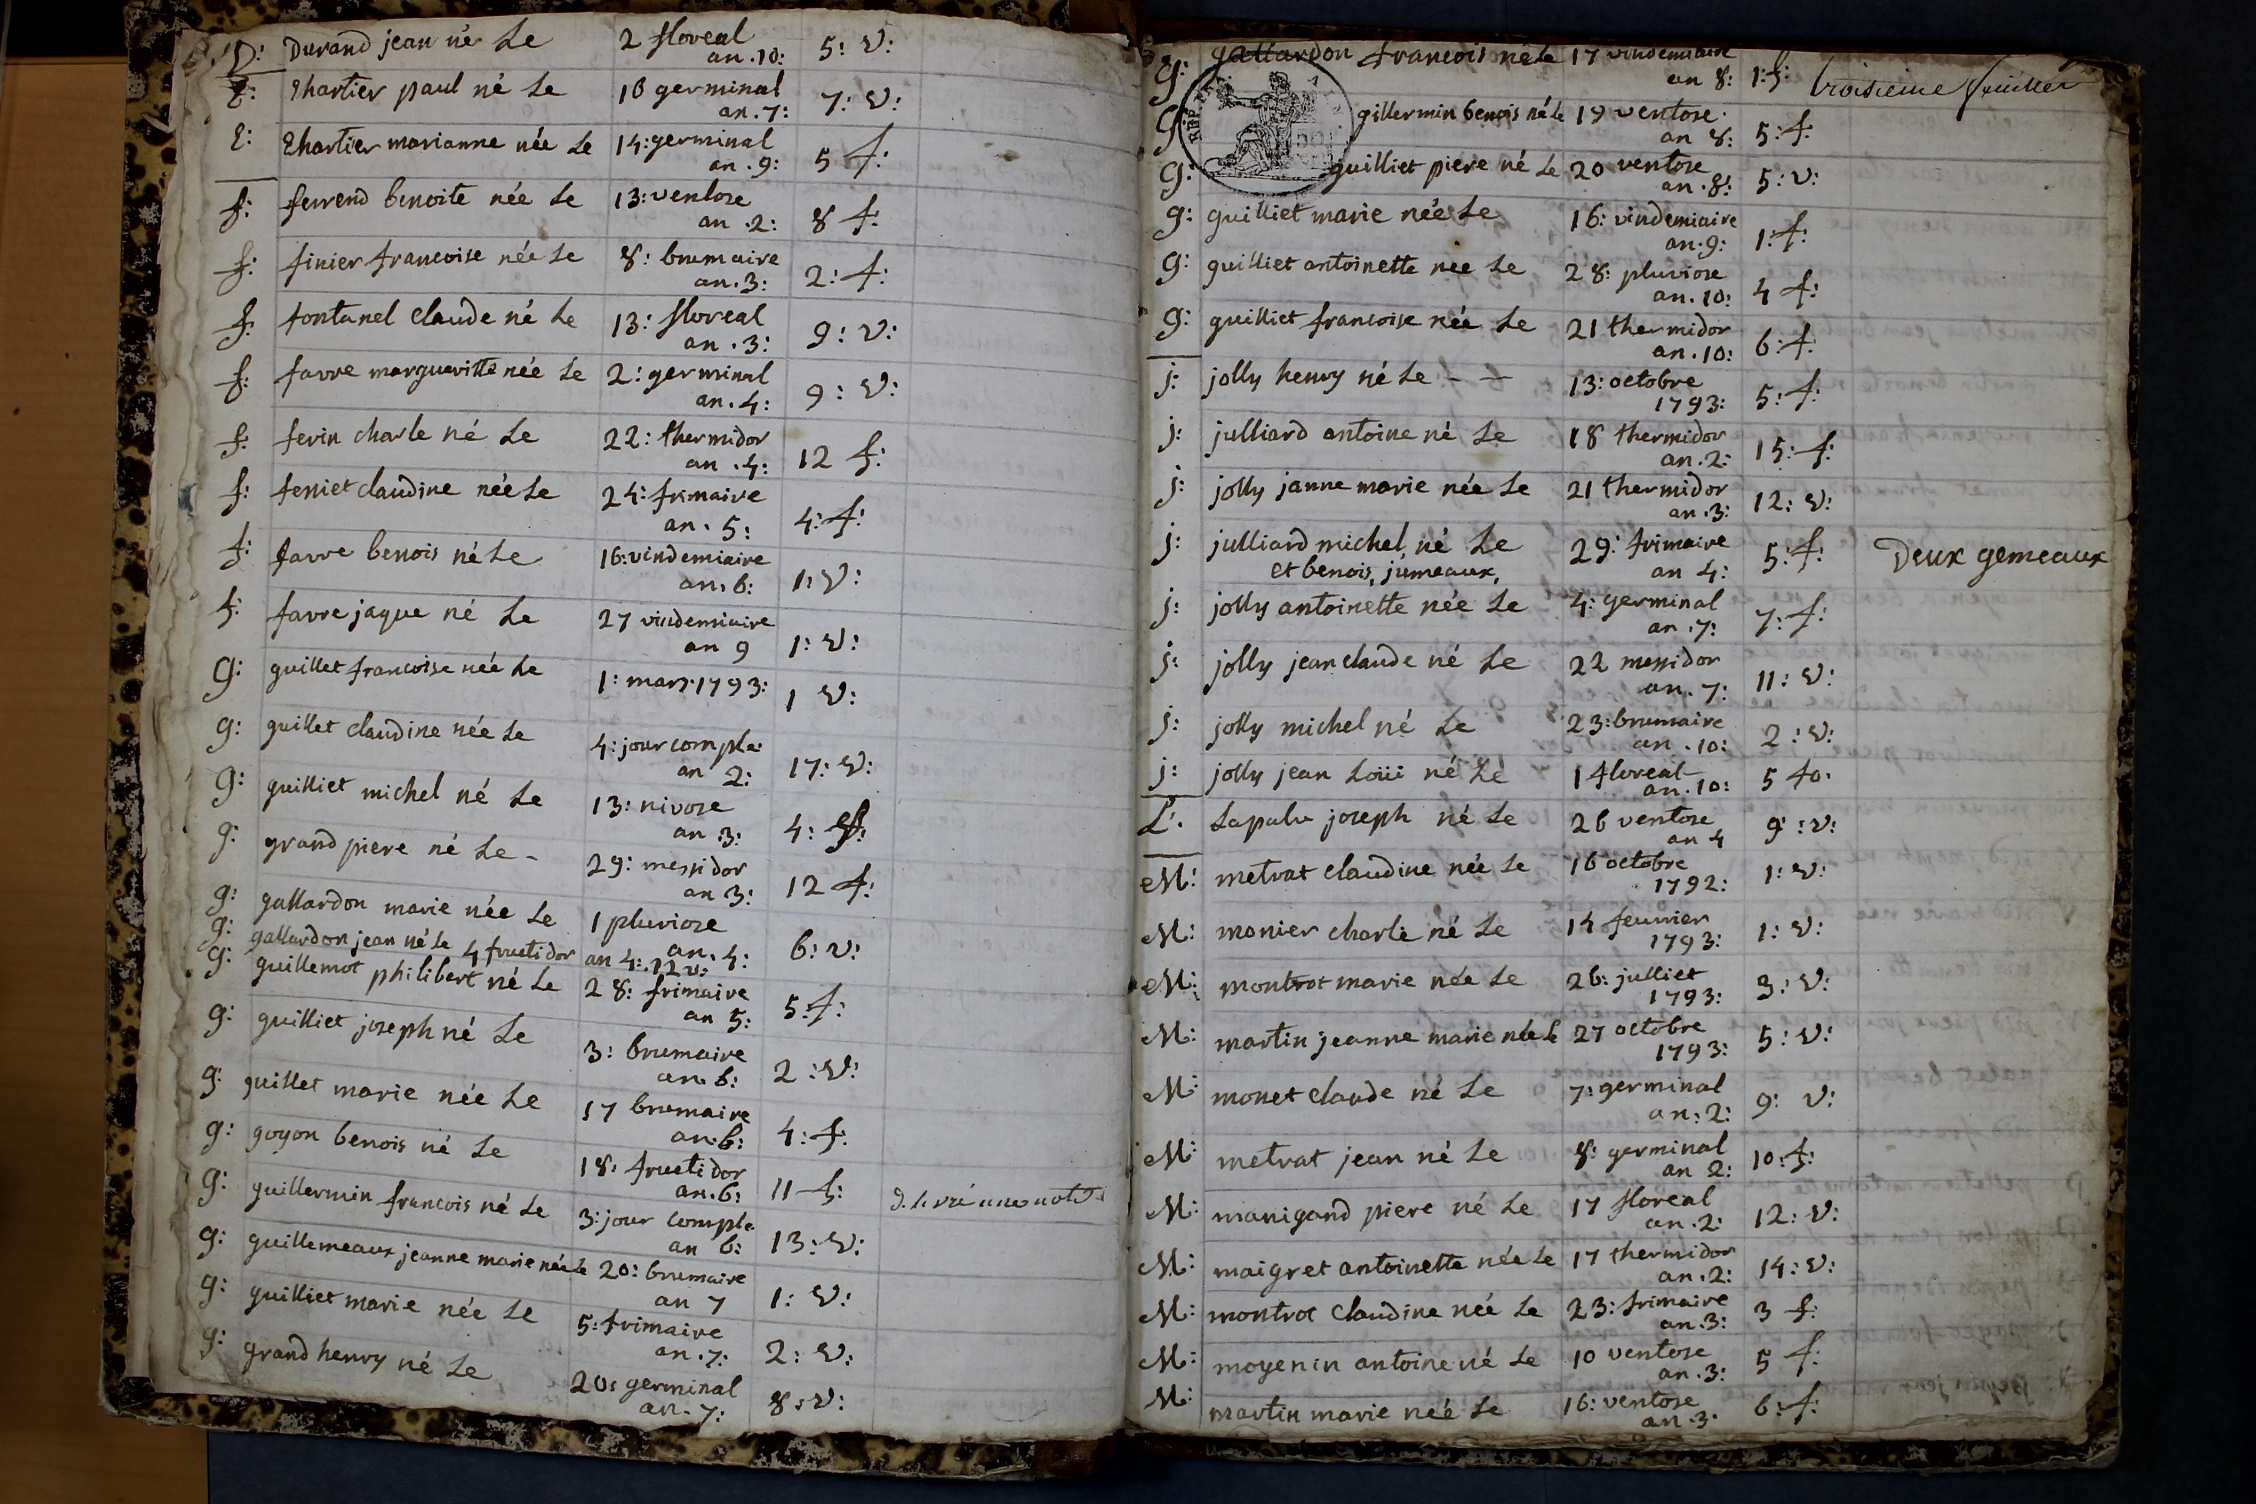 D: Durand jean né Le 2 floreal an .10: 5: V:
E: Ehartier paul né Le 16 germinal an .7: 7: V:
E: Ehartier marianne née Le 14: germinal an .9: 5 f:
f: ferrend benoite née Le 13: ventose an .2: 8 f:
f: finier francoise née Le 8: brumaire an .3: 2: f:
f: fontanel claude né Le 13: floreal an .3: 9: V:
f: favre margueritte née Le 2: germinal an .4: 9: V:
f: ferin charle né Le 22: thermidor an .4: 12 f:
f: feniet claudine née Le 24: frimaire an . 5: 4: f:
f: favre benois né Le 16: vindemiaire an . 6: 1: V:
f: favre jaque né Le 27 vindemiaire an 9 1: V:
g: guillet francoise née Le 1: mars 1793: 1 V:
g: guillet claudine née Le 4: jour comple: an 2: 17: V:
g: guilliet michel né Le 13: nivose an .3: 4: f:
g: grand piere né Le - 29: messidor an .3: 12 f:
g: gallardon marie née Le 1 pluviose an . 4: 6: V:
g: gallardon jean né Le 4 fructidor an 4: 12 v:
g: guillemot philibert né Le 28: frimaire an 5: 5: f:
g: guilliet joseph né Le 3: brumaire an . 6: 2: V:
g: guillet marie née Le 17 brumaire an . 6: 4: f:
g: goyon benois né Le 18: fructidor an . 6: 11 f:
g: guillermin francois né Le 3: jour comple. an 6: 13: V:
g: guillemeaux jeanne marie née Le 20: brumaire an 7 1: V:
g: guilliet marie née Le 5: frimaire an . 7: 2: V:
g: grand henry né Le 20: germinal an . 7: 8: V:
g: gallardon francois né Le 17 vindemiaire an 8: 1: f: troisieme feuillet
g: gillermin benois né Le 19 ventose an 8: 5: f:
g: guilliet piere né Le 20 ventose an . 8: 5: V:
g: guilliet marie née Le 16: vindemiaire an . 9: 1: f:
g: guilliet antoinette née Le 28: pluviose an . 10: 4 f:
g: guilliet francoise née Le 21 thermidor an . 10: 6: f:
j: jolly henry né Le - - 13: octobre 1793: 5: f:
j: julliard antoine né Le 18 thermidor an . 2: 15: f:
j: jolly janne marie née Le 21 thermidor an .3: 12: V:
j: julliard michel né Le 29: frimaire an 4: 5: f: Deux gemeaux
et benois, jumeaux,
j: jolly antoinette née Le 4: germinal an .7: 7: f:
j: jolly jean claude né Le 22 messidor an . 7: 11: V:
j: jolly michel né Le 23: brumaire an . 10: 2: V:
j: jolly jean Loüi né Le 1 floreal an . 10: 5 fo.
L: Lapalu joseph né Le 26 ventose an 4 9: V:
M: metrat claudine née Le 16 octobre 1792: 1: V:
M: monier charle né Le 14 feuvrier 1793: 1: V:
M: montrot marie née Le 26: julliet 1793: 3: V:
M: martin jeanne marie née Le 27 octobre 1793: 5: V:
M: monet claude né Le 7: germinal an . 2: 9: V:
M: metrat jean né Le 8: germinal an 2: 10: f:
M: manigand piere né Le 17 floreal an . 2: 12: V:
M: maigret antoinette née Le 17 thermidor an . 2: 14: V:
M: montrot claudine née Le 23: frimaire an . 3: 3 f:
M: moyenin antoine né Le 10 ventose an . 3: 5 f:
M: martin marie née Le 16: ventose an . 3. 6: f: